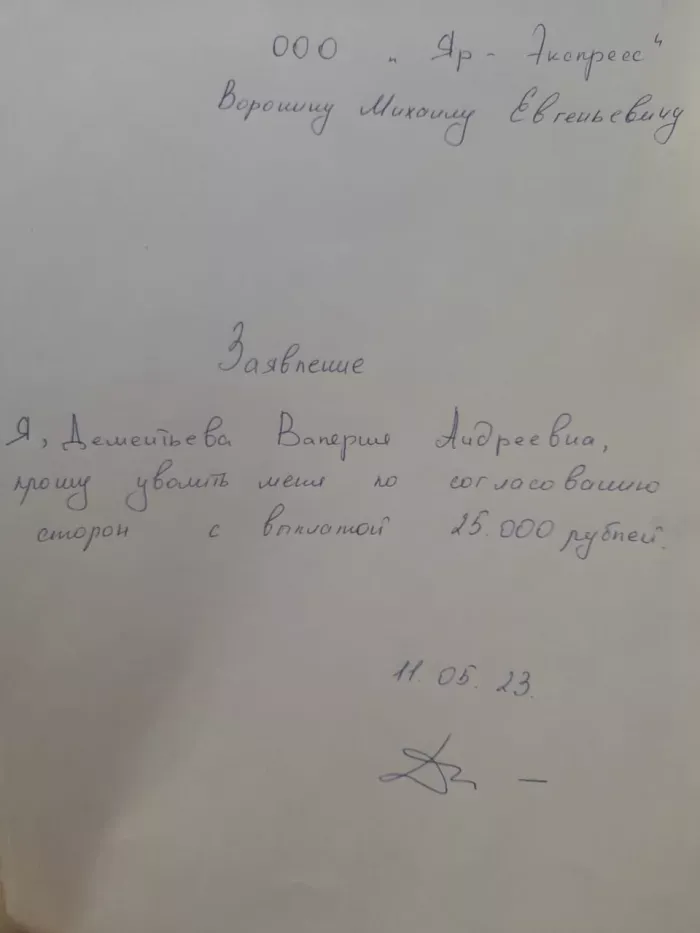 ООО „ Яр - Экспресс“
Воронину Михаилу Евгеньевичу
Заявление
Я, Дементьева Валерия Андреевна,
прошу уволить меня по согласованию
сторон с выплатой 25.000 рублей.
11. 05. 23.